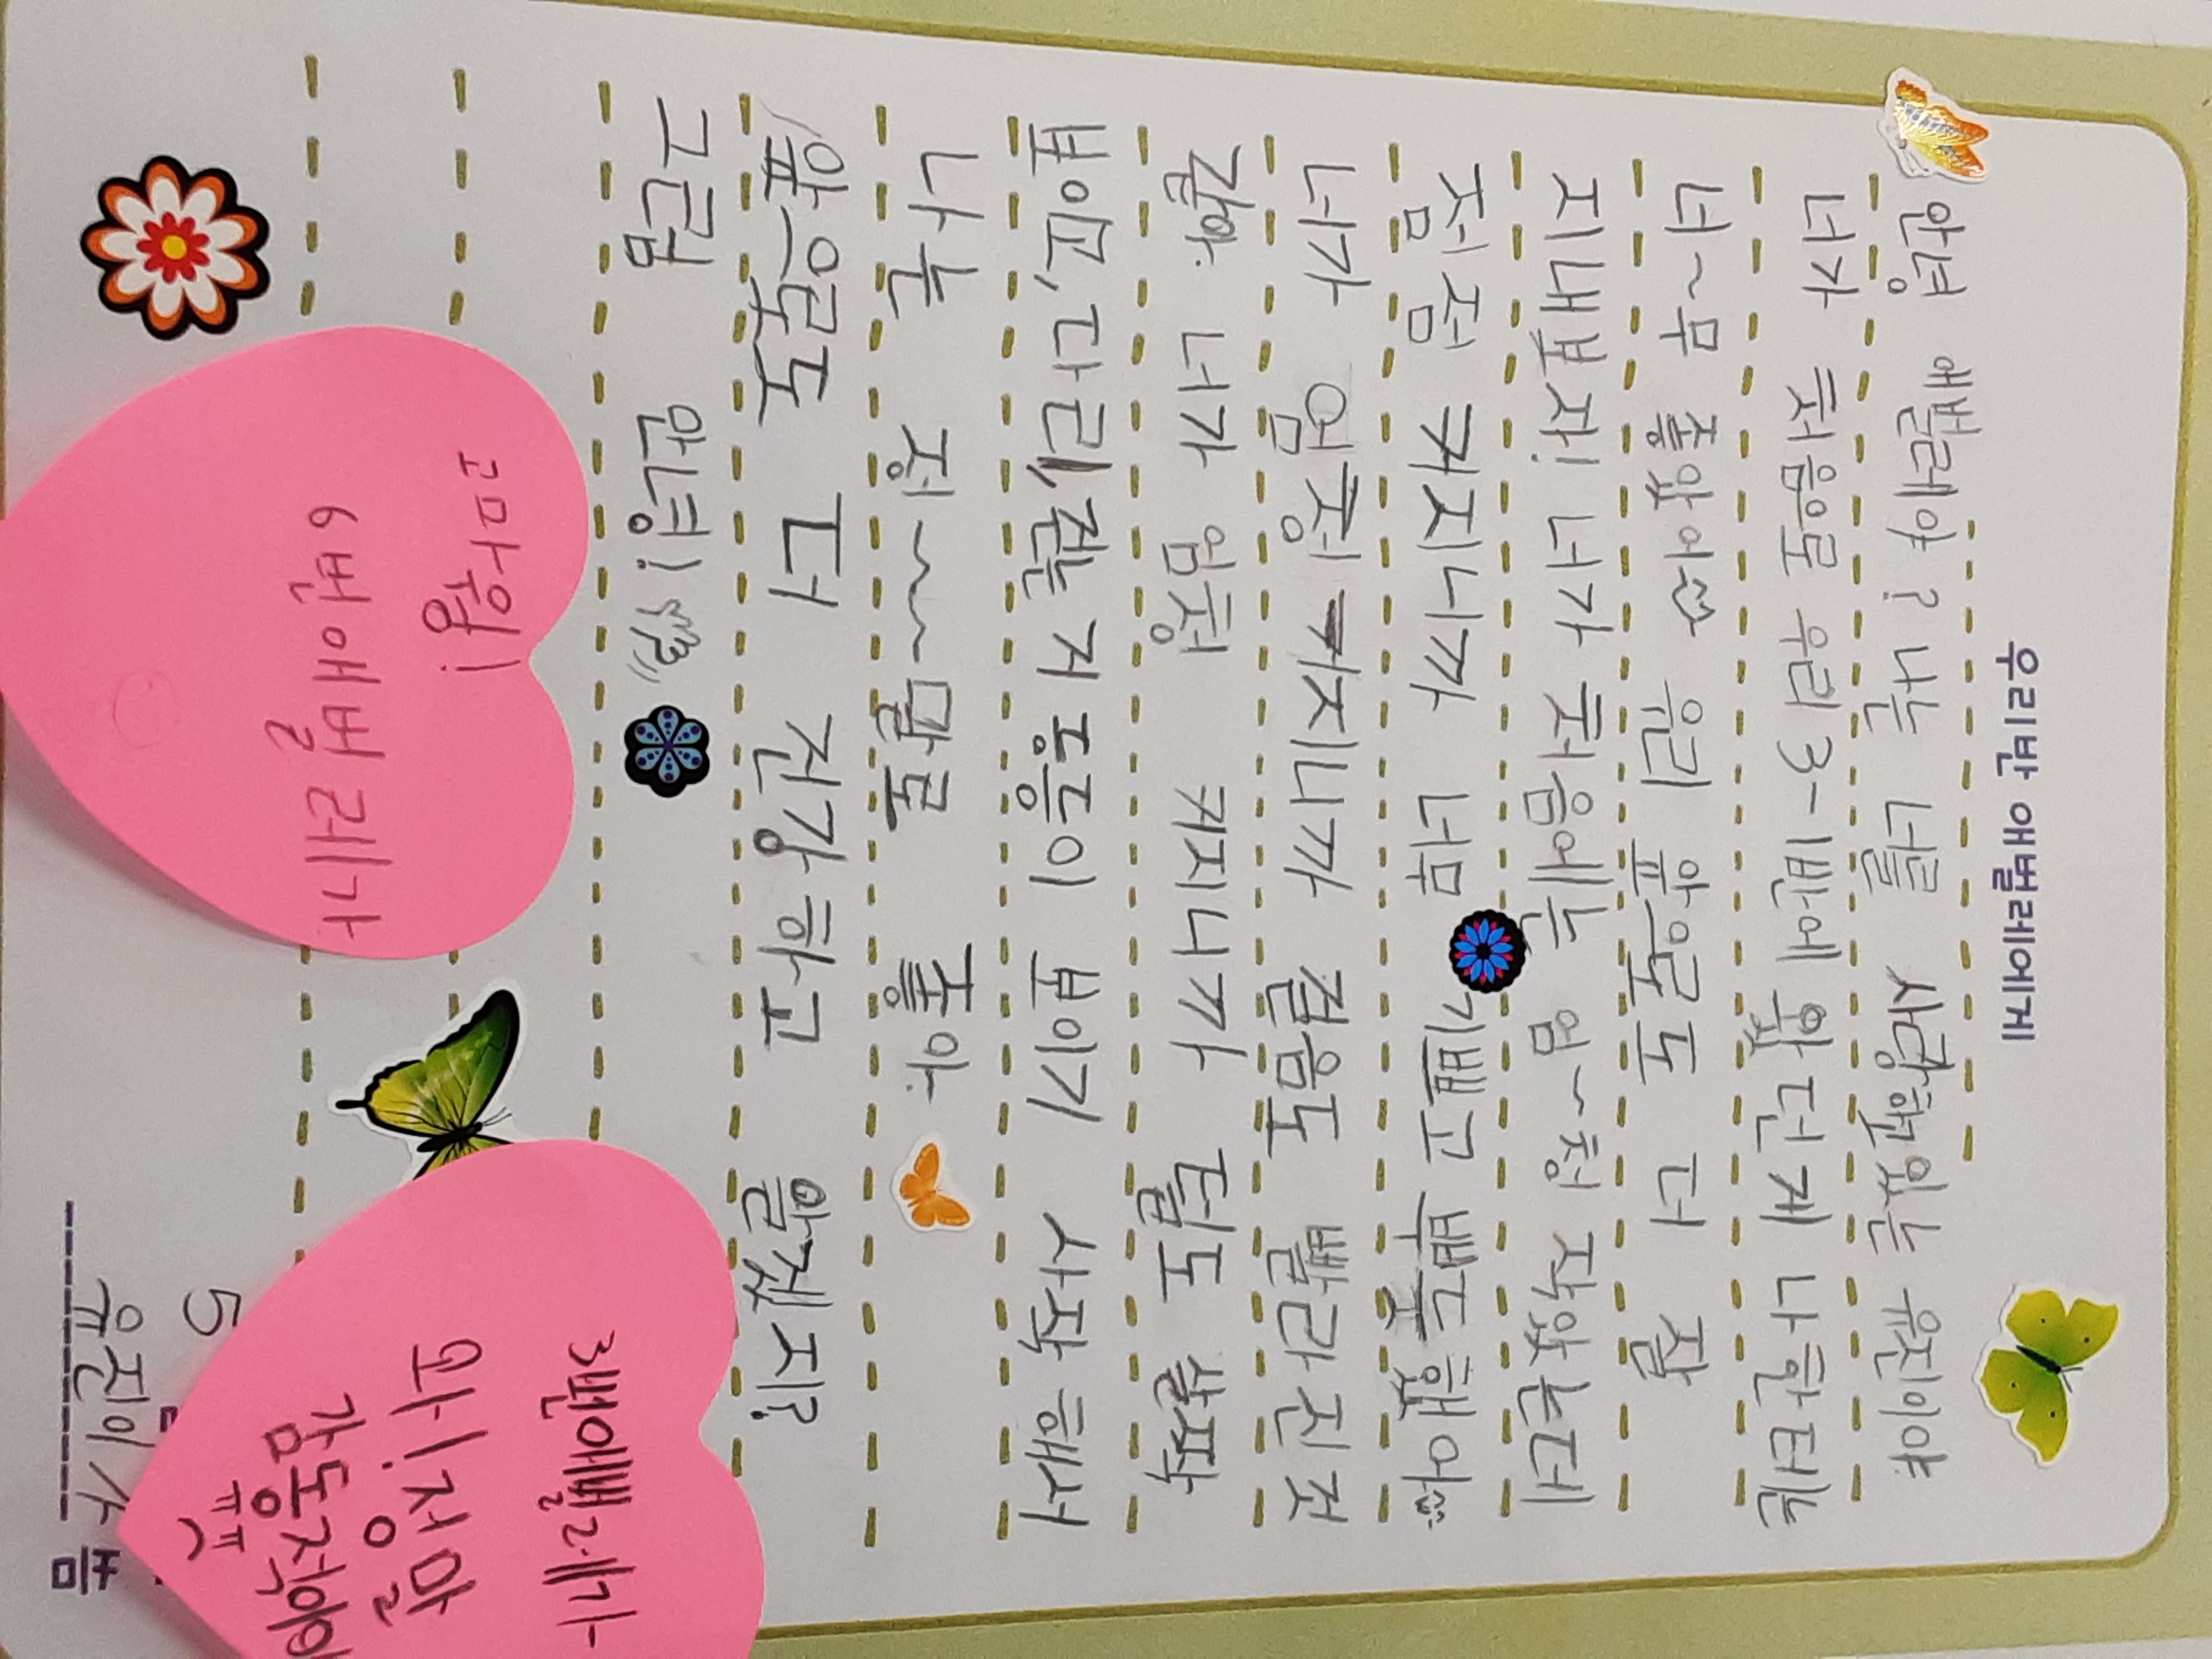 우리반 애벌레에게
안녕 애벌레야? 나는 너를 사랑하고있는 유진이야
너가 처음으로 우리 3-1반에 왔던게 나한테는
너~무 좋았어 우리 앞으로도 더 잘
지내보자! 너가 처음에는 엄~청 작았는데
점점 커지니까 너무 기쁘고 뿌듯했어
너가 엄청 커지니까 걸음도 빨라진것
같아. 너가 엄청 커지니까 털도 살짝
보이고, 다리 같은 거 등이 보이기 시작해서
나는 정~~말로 좋아.
앞으로도 더 건강하고 알겠지?
그럼 안녕!
고마워!
6번애벌레가
3번애벌레가
와! 정말
감동적이야
ㅠㅠ
5
유진이가
씀